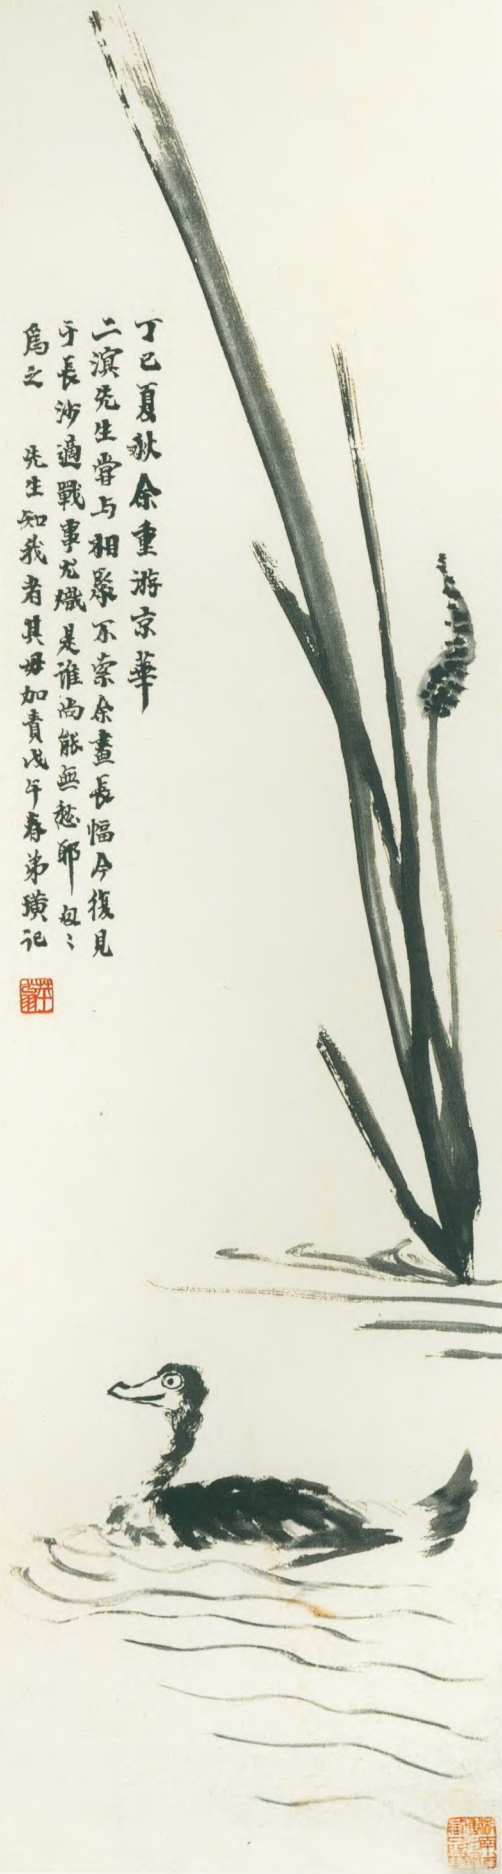 丁巳夏秋余重游京華
二濱先生嘗与相聚不索余畫長幅今復見
于長沙適戰事尤熾是誰尚能無愁耶匆〻
為之　先生知我者其毋加責戊午春弟璜記